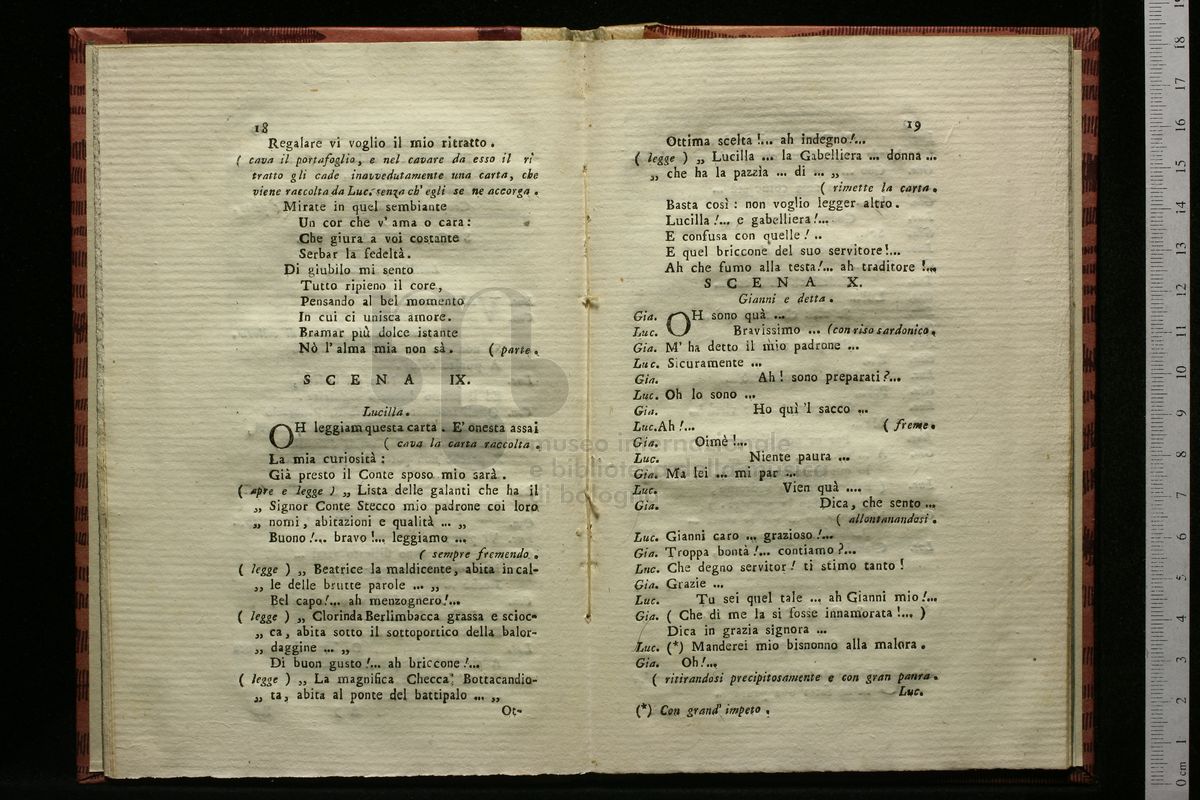 18
Regalare vi voglio il mio ritratto .
( cava il portafoglio, e nel cavare da esso il ri
tratto gli cade inavvedutamente una carta, che
viene raccolta da Luc. senza ch' egli se ne accorga .
Mirate in quel sembiante
Un cor che v' ama o cara :
Che giura a voi costante
Serbar la fedeltà .
Di giubilo mi sento
Tutto ripieno il core ,
Pensando al bel momento
In cui ci unisca amore .
Bramar più dolce istante
Nò l' alma mia non sà . ( parte .
SCENA IX.
Lucilla .
OH leggiam questa carta . E' onesta assai
( cava la carta raccolta .
La mia curiosità :
Già presto il Conte sposo mio sarà .
( apre e legge ) „ Lista delle galanti che ha il
„ Signor Conte Stecco mio padrone coi loro
„ nomi , abitazioni e qualità ... „
Buono !... bravo !... leggiamo ...
( sempre fremendo .
( legge ) „ Beatrice la maldicente , abita in cal-
„ le delle brutte parole ... „
Bel capo !... ah menzognero !...
( legge ) „ Clorinda Berlimbacca grassa e scioc-
„ ca , abita sotto il sottoportico della balor-
„ daggine ... „
Di buon gusto !... ah briccone !...
( legge ) „ La magnifica Checca Bottacandio-
„ ta , abita al ponte del battipalo ... „
Ot-
19
Ottima scelta !... ah indegno !...
( legge ) „ Lucilla ... la Gabelliera ... donna ...
„ che ha la pazzia ... di ... „
( rimette la carta .
Basta così : non voglio legger altro .
Lucilla !... e gabelliera !...
E confusa con quelle ! ..
E quel briccone del suo servitore !...
Ah che fumo alla testa !... ah traditore !...
SCENA X.
Gianni e detta .
Gia. OH sono quà ...
Luc. Bravissimo ... (con riso sardonico .
Gia. M' ha detto il mio padrone ...
Luc. Sicuramente ...
Gia. Ah ! sono preparati ?...
Luc. Oh lo sono ...
Gia. Ho quì 'l sacco ...
Luc. Ah !... ( freme .
Gia. Oimè !...
Luc. Niente paura ...
Gia. Ma lei ... mi par ...
Luc. Vien quà ....
Gia. Dica, che sento ...
( allontanandosi .
Luc. Gianni caro ... grazioso !...
Gia. Troppa bontà !... contiamo ?...
Luc. Che degno servitor ! ti stimo tanto !
Gia. Grazie ...
Luc. Tu sei quel tale ... ah Gianni mio !...
Gia. ( Che di me la si fosse innamorata !... )
Dica in grazia signora ...
Luc. (*) Manderei mio bisnonno alla malora .
Gia. Oh !...
( ritirandosi precipitosamente e con gran paura .
Luc.
(*) Con grand' impeto .